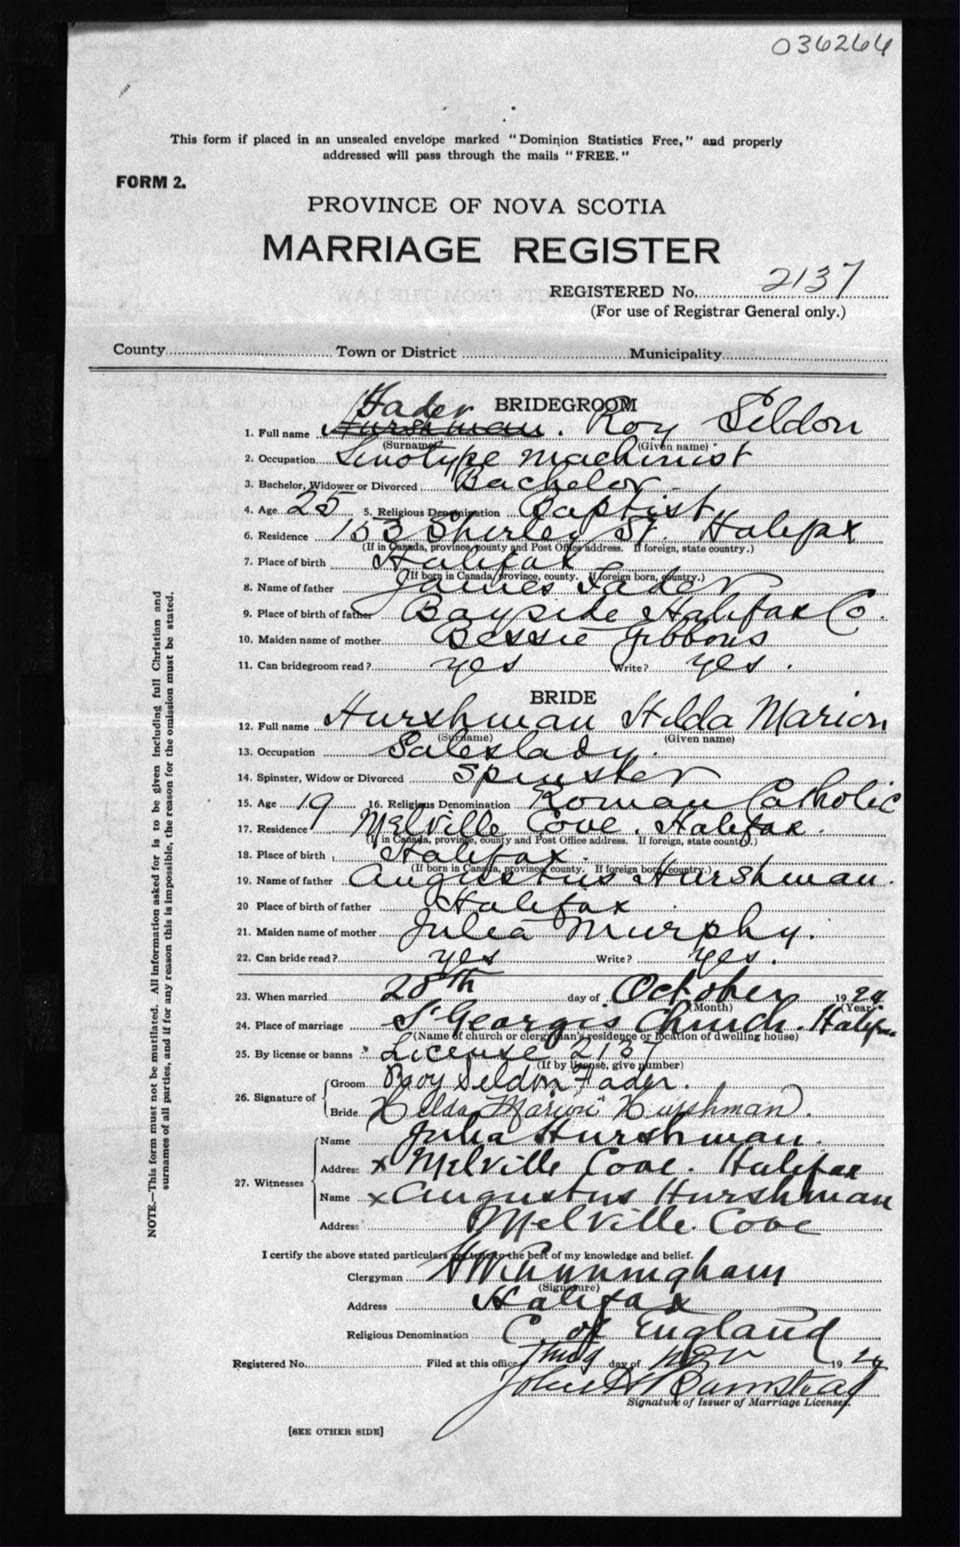 036264
This form if placed in an unsealed envelope marked "Dominion Statistics Free," and properly
addressed will pass through the mails "FREE."
FORM 2.
PROVINCE OF NOVA SCOTIA
MARRIAGE REGISTER
REGISTERED No. 2137
(For use of Registrar General only.)
County Town or District Municipality
BRIDEGROOM
Fader
1. Full name Hurshman. Roy Seldon
(Surname) (Given name)
2. Occupation Linotype machinist
3. Bachelor, Widower or Divorced Bachelor
4. Age 25 5. Religious Denomination Baptist
6. Residence 153 Shirley St. Halifax
(If in Canada, province, county and Post Office address. If foreign, state country.)
7. Place of birth Halifax
(If born in Canada, province, county. If foreign born, country.)
8. Name of father James Fader
9. Place of birth of father Bayside Halifax Co.
10. Maiden name of mother Bessie Gibbons
11. Can bridegroom read? yes Write? yes.
BRIDE
12. Full name Hurshman Hilda Marion
(Surname) (Given name)
13. Occupation Saleslady.
14. Spinster, Widow or Divorced Spinster
15. Age 19 16. Religious Denomination Roman Catholic
17. Residence Melville Cove. Halifax.
(If in Canada, province, county and Post Office address. If foreign, state country.)
18. Place of birth Halifax.
(If born in Canada, province, county. If foreign born, country.)
19. Name of father Augustus Hurshman.
20 Place of birth of father Halifax
21. Maiden name of mother Julia Murphy.
22. Can bride read? yes Write? yes.
23. When married 28th day of October 19
(Month) (Year)
24. Place of marriage St Georges Church. Halifax
(Name of church or clergyman's residence or location of dwelling house)
25. By license or banns License 2137
(If by license, give number)
26. Signature of Groom Roy Seldon Fader.
Bride Hilda Marion Hurshman.
27. Witnesses Name Julia Hurshman.
Address x Melville Cove. Halifax
Name x Augustus Hurshman
Address Melville Cove
I certify the above stated particulars are true to the best of my knowledge and belief.
Clergyman H W Cunningham
(Signature)
Address Halifax
Religious Denomination C. of England
Registered No. Filed at this office day of Nov 19
Signature of Issuer of Marriage Licenses.
[SEE OTHER SIDE]
NOTE.—This form must not be mutilated. All information asked for is to be given including full Christian and
surnames of all parties, and if for any reason this is impossible, the reason for the omission must be stated.